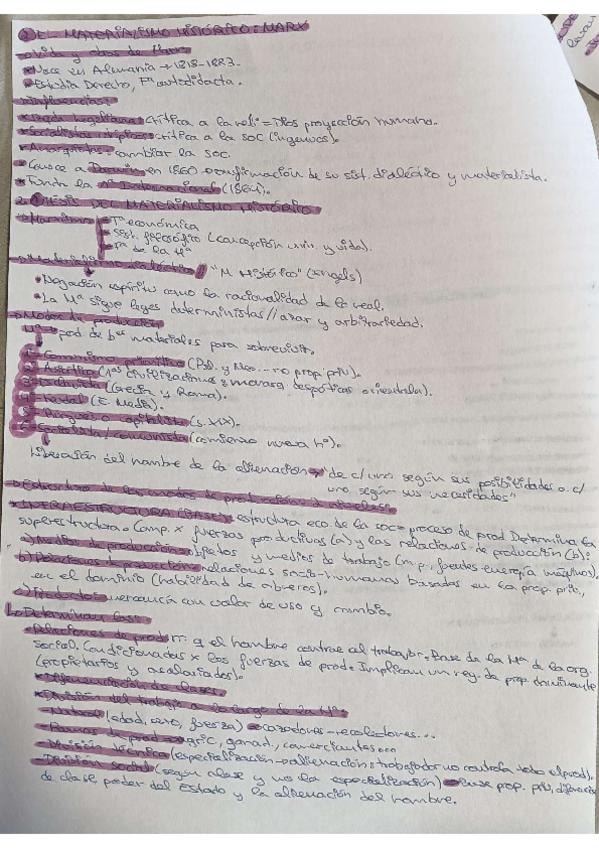 ① EL MATERIALISMO HISTÓRICO: MARX
→ Vida y obras de Marx
• Nace en Alemania → 1818-1883.
• Estudia Derecho, Fª autodidacta.
→ Influencias:
• Izqda hegeliana: Crítica a la reli = Dios proyección humana.
• Socialistas utópicos: crítica a la soc (ingenuos).
• Anarquistas: cambiar la soc.
• Conoce a Darwin en 1860 → confirmación de su sist. dialéctico y materialista.
• Funda la 1ª Internacional (1864).
2. TESIS DEL MATERIALISMO HISTÓRICO
→ Marxismo Tª económica
Sist. filosófico (concepción univ. y vida).
Fª de la Hª
→ Materialismo dialéctico // "M Histórico" (Engels)
• Negación espíritu como la racionalidad de lo real.
• La Hª sigue leyes deterministas // azar y arbitrariedad.
→ Modos de producción
Hª = prod de bes materiales para sobrevivir.
1- Comunismo primitivo (Pal. y Neo... no prop priv).
2- Asiático (1as civilizaciones y monarq. despóticas
3- Esclavista (Grecia y Roma).
4- Feudal (E. Media).
5- Burgués o capitalista (s. XIX).
6- Socialista / comunista (comienzo nueva hª).
Liberación del hombre de la alienación → "de c/uno según sus posibilidades a c/
uno según sus necesidades"
→ Estructura de los modos de producción
• INFRAESTRUCTURA (BASE): estructura eco. de la soc = proceso de prod. Determina la
superestructura. Comp. x fuerzas productivas (a) y las relaciones de producción (b):
a) Medios de producción: objetos y medios de trabajo (m.p., fuentes energía, máquinas).
b) Relaciones de producción: relaciones socio-humanas basadas en la prop. priv.,
en el dominio (habilidad de obreros).
c) Productos: mercancía con valor de uso y cambio.
L. Determinan
• Relaciones de prod: rr. q el hombre contrae al trabajar. Base de la Hª de la org.
social. Condicionadas x las fuerzas de prod. Implican un reg. de prop. dominante
(propietarios y asalariados).
• Diferenciación de clases.
• División del trabajo a lo largo de la Hª
- Natural (edad, sexo, fuerza) → cazadores-recolectores...
- Ramas de prod → agric, ganad., comerciantes...
- División técnica (especialización → alienación: trabajador no controla todo el prod).
- División social (según clase y no la especialización) → base prop. priv,
de clase, poder del estado y la alienación del hombre.